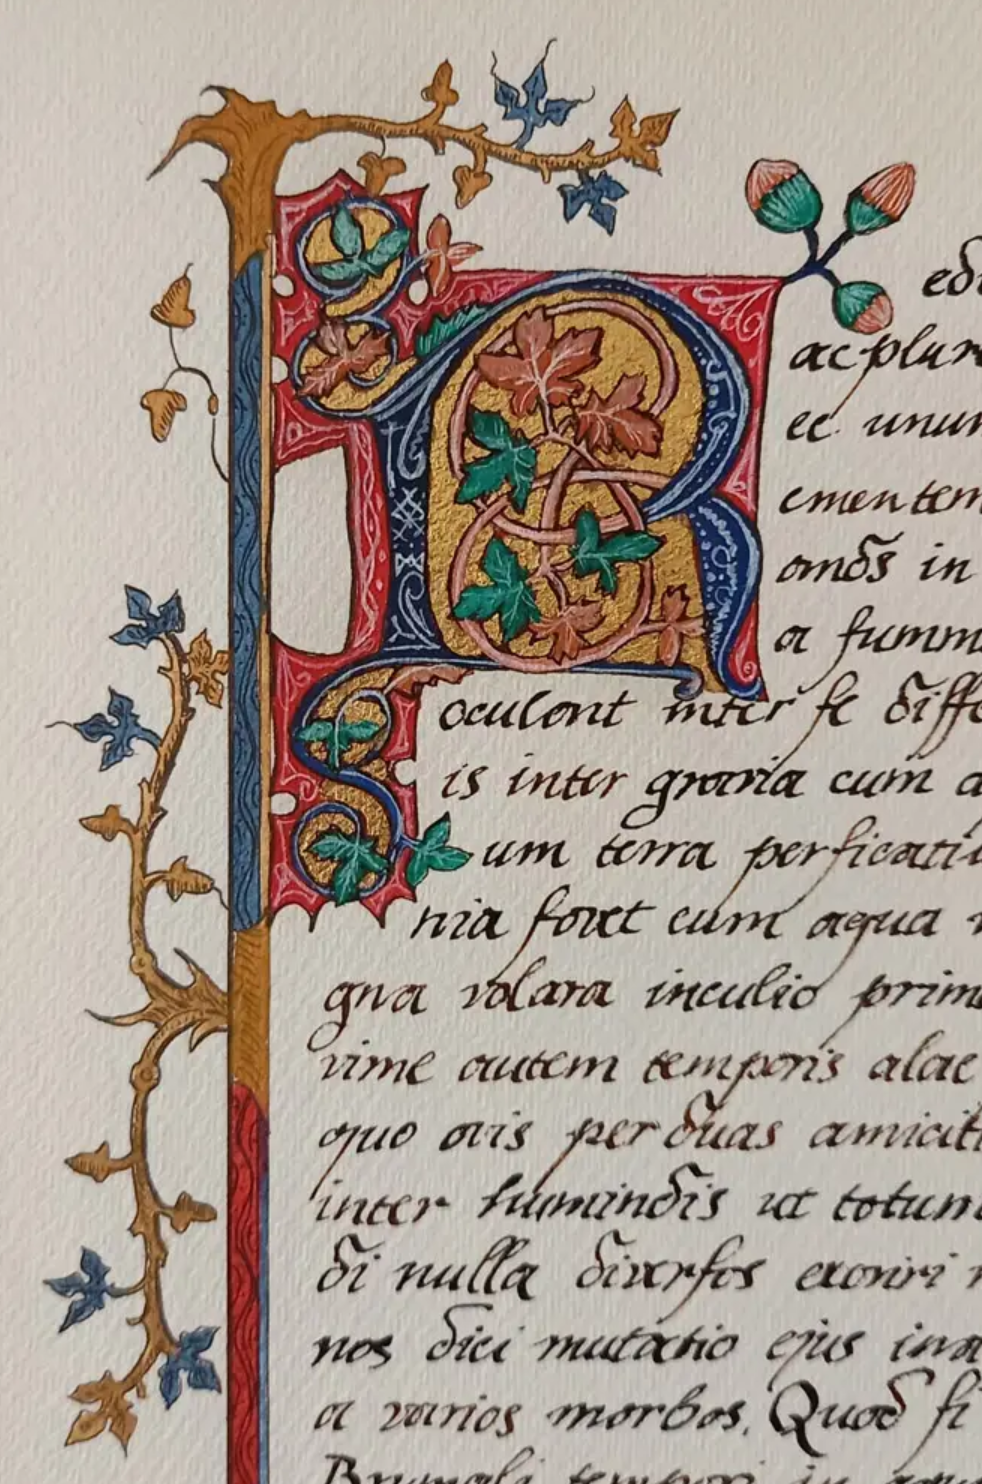 R
edi
ac plur
ec unum
ementem
in
a summ
oculant inter se diffe
is inter gravia cum a
um terra perficati
nia foret cum aqua
gna volara inculio prim
rime autem temporis alae
quo avis per duas amicit
inter humindis ut totum
di nulla diversos exoriri
nos dici mutatio ejus in
a varios morbos. Quod si
Brumali tempori in aqu